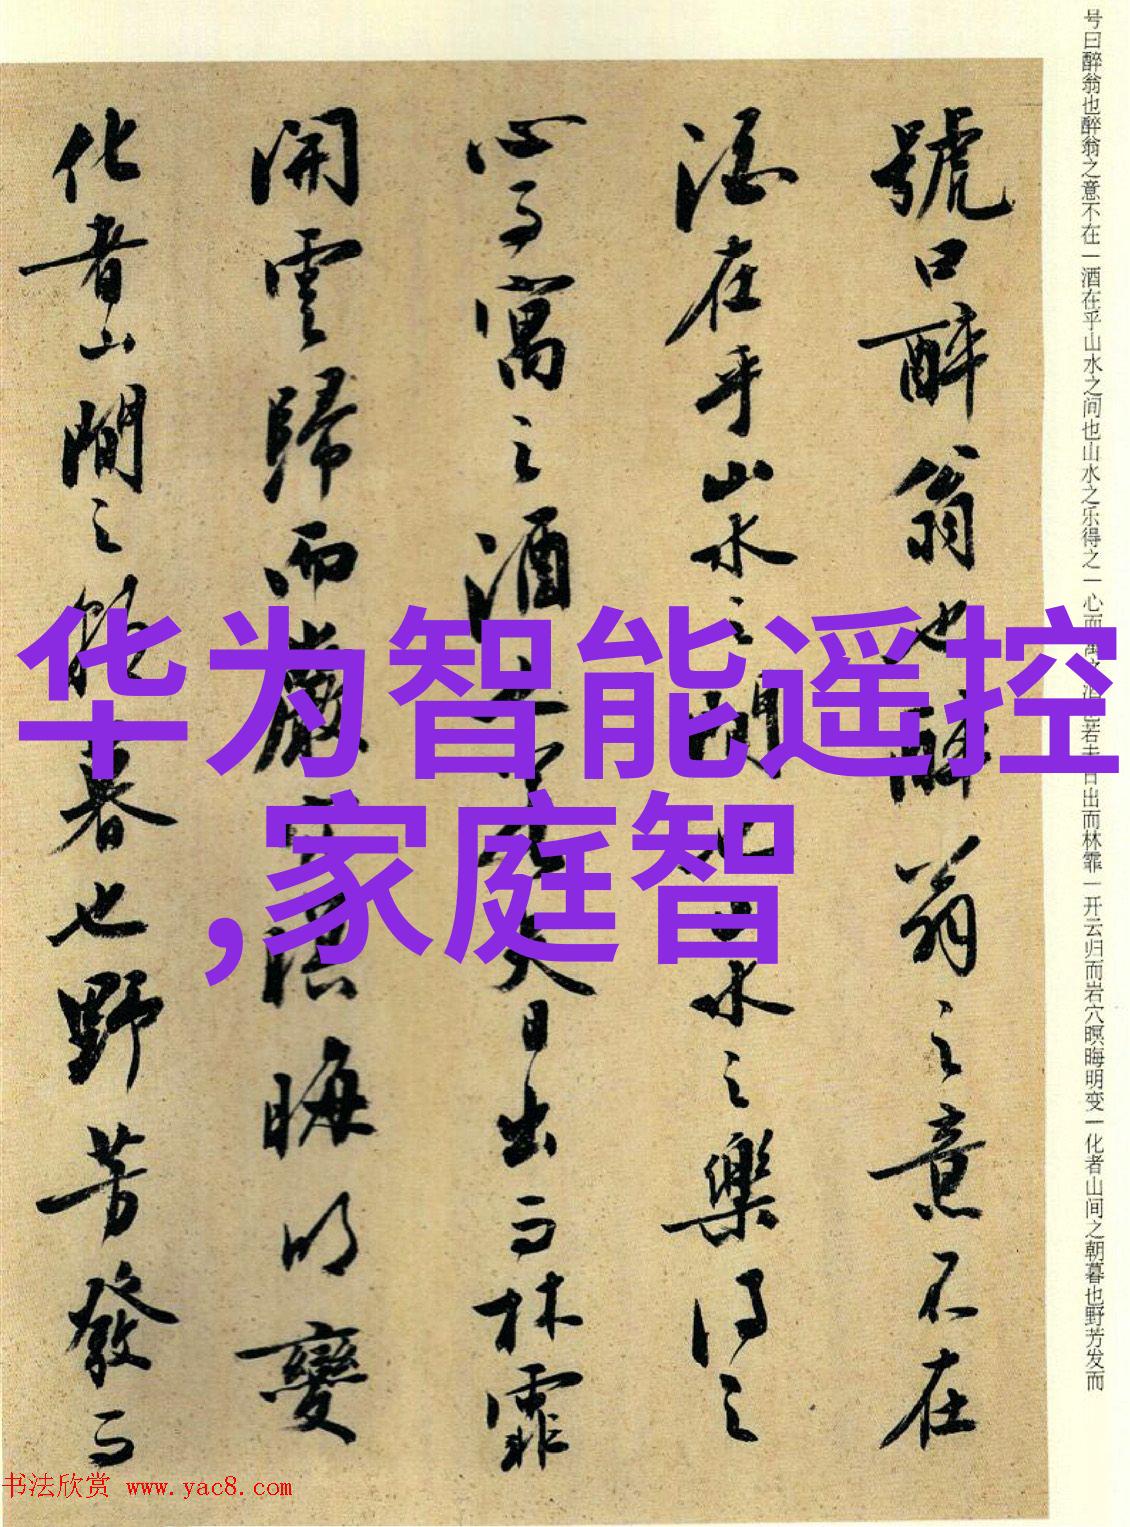 號曰醉翁也醉翁之意不在
酒在乎山水之間也山水之樂得之
心而寓之酒也若夫日出而林霏
開雲歸而巖穴暝晦明變
化者山間之朝暮也野芳發而
号曰醉翁也醉翁之意不在一酒在乎山水之间也山水之乐得之一心而寓之酒也若夫日出而林霏一开云归而岩穴暝晦明变一化者山间之朝暮也野芳发而
华为智能遥控
,家庭智
书法欣赏 www.yac8.com